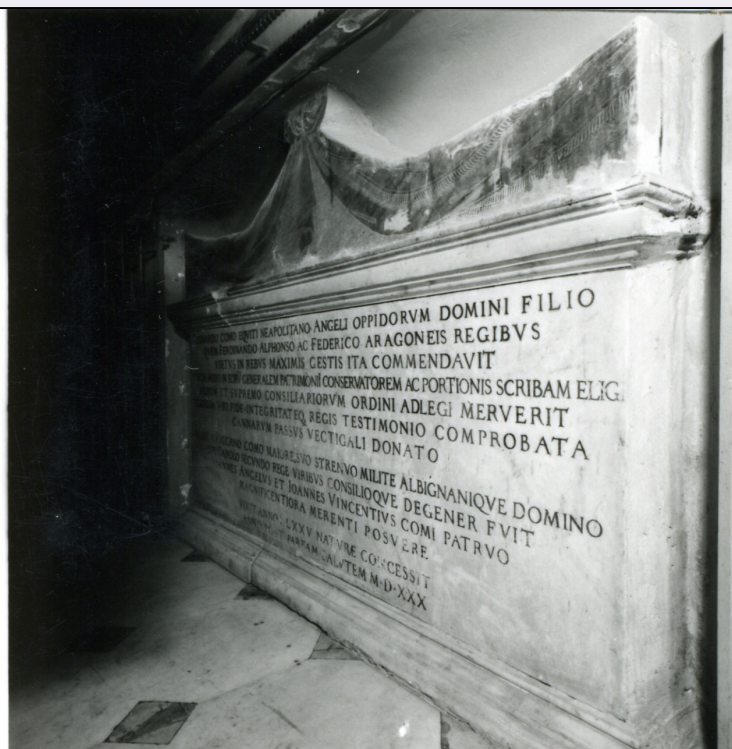 COMO EQUITI NEAPOLITANO ANGELI OPPIDORVM DOMINI FILIO
FERDINANDO ALPHONSO AC FEDERICO ARAGONEIS REGIBVS
VIRTVS IN REBVS MAXIMIS GESTIS ITA COMMENDAVIT
GENERALEM PATRIMONII CONSERVATOREM AC PORTIONIS SCRIBAM ELIG
ET SVPREMO CONSILIARIORVM ORDINI ADLEGI MERVERIT
INTEGRITATEQ REGIS TESTIMONIO COMPROBATA
CANNARVM PASSVS VECTIGALI DONATO
COMO MAIORE SVO STRENVO MILITE ALBIGNANIQVE DOMINO
SECVNDO REGE VIRIBVS CONSILIOQVE DEGENER FVIT
ANGELVS ET IOANNES VINCENTIVS COMI PATRVO
MAGNIFICENTIORA MERENTI POSVERE
ANNO LXXV NATVRÆ CONCESSIT
PARTAM SALVTEM M·D·XXX